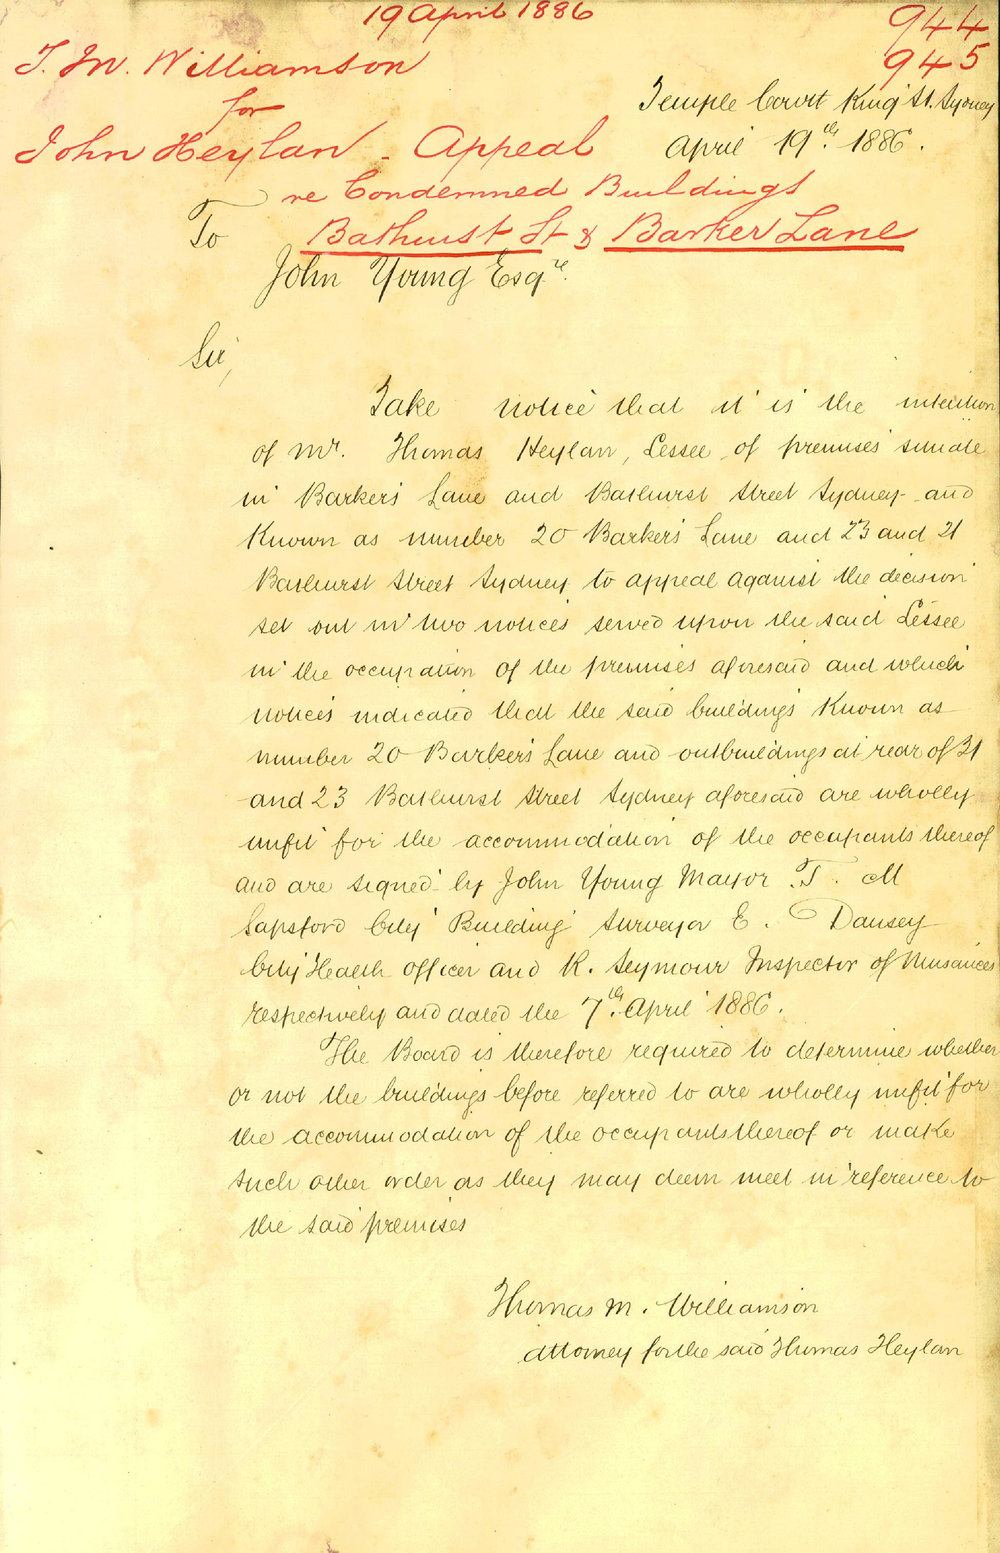 19 April 1886
944
945
T. M. Williamson
for
John Heylan - Appeal
re Condemned Buildings
Bathurst St & Barker Lane
Temple Court King St. Sydney
April 19th. 1886.
To
John Young Esqre.
Sir,
Take notice that it is the intention
of Mr. Thomas Heylan, Lessee of premises situate
in Barker's Lane and Bathurst Street Sydney and
Known as number 20 Barker's Lane and 23 and 21
Bathurst Street Sydney to appeal against the decision
set out in two notices served upon the said Lessee
in the occupation of the premises aforesaid and which
notices indicated that the said buildings Known as
number 20 Barker's Lane and outbuildings at rear of 21
and 23 Bathurst Street Sydney aforesaid are wholly
unfit for the accommodation of the occupants thereof
and are signed by John Young Mayor T. M
Sapsford City Building Surveyor E. Dansey
City Health officer and R. Seymour Inspector of Nuisances
respectively and dated the 7th. April 1886.
The Board is therefore required to determine whether
or not the buildings before referred to are wholly unfit for
the accommodation of the occupants thereof or make
such other order as they may deem meet in reference to
the said premises
Thomas M. Williamson
Attorney for the said Thomas Heylan